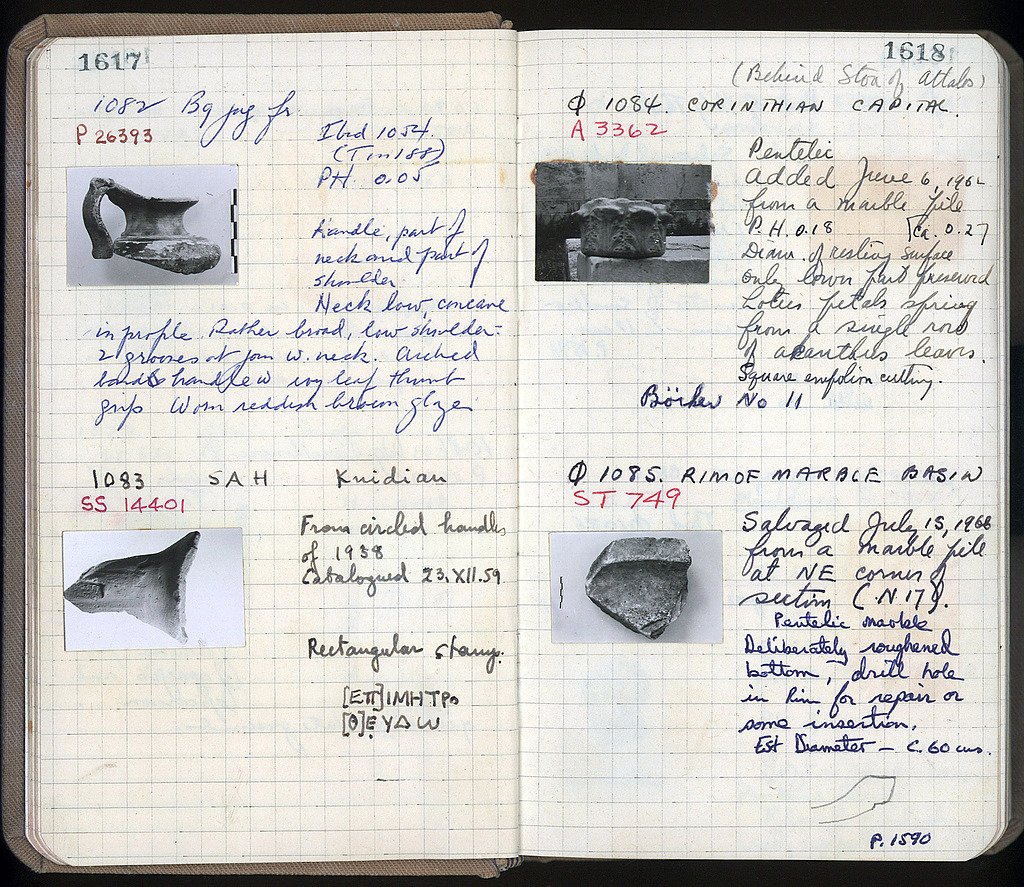 1617
1082 Bg jug fr
P 26393
Ibid 1054.
(Tm 188)
PH. 0.05
Handle, part of
neck and part of
shoulder
Neck low, concave
in profile. Rather broad, low shoulder:
2 grooves at join w. neck. Arched
band handle w ivy leaf thumb
grip Worn reddish brown glaze
1083 SAH Knidian
SS 14401
From circled handles
of 1938
Catalogued 23.XII.59
Rectangular stamp.
[ΕΠ]ΙΜΗΤΡο
[Θ]ΕΥΔω
1618
(Behind Stoa of Attalos)
Φ 1084. CORINTHIAN CAPITAL.
A 3362
Pentelic
Added June 6, 1962
from a marble pile
P.H. 0.18 ca. 0.27
Diam. of resting surface
only lower part preserved
Lotus petals spring
from a single row
of acanthus leaves.
Square empolion cutting.
Börker No 11
Φ 1085. RIM OF MARBLE BASIN
ST 749
Salvaged July 15, 1966
from a marble pile
at NE corner of
section (N 17).
Pentelic marble
Deliberately roughened
bottom, drill hole
in rim for repair or
some insertion.
Est Diameter – c. 60 cms.
P. 1590